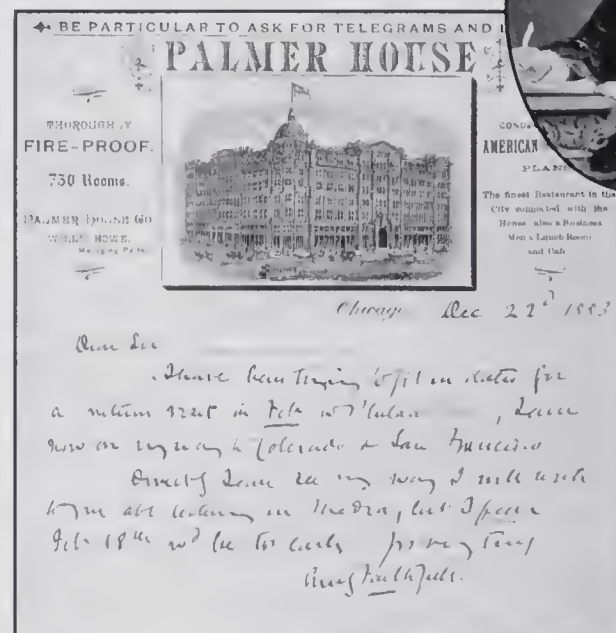 BE PARTICULAR TO ASK FOR TELEGRAMS AND
PALMER HOUSE
THOROUGHLY
FIRE-PROOF.
730 Rooms.
PALMER HOUSE CO
WILLIS HOWE,
AMERICAN
PLANS
The finest Restaurant in the
City connected with the
House also a Business
Men's Lunch Room
and Cafe
Chicago Dec 22d
Dear Sir
I have been trying to fit in dates for
a return visit in Feb
now on my way to Colorado & San Francisco
Directly I can see my way I will write
to you abt lecturing in but I fear
Feb 18th wd be too early for my
Yrs Faithfully.